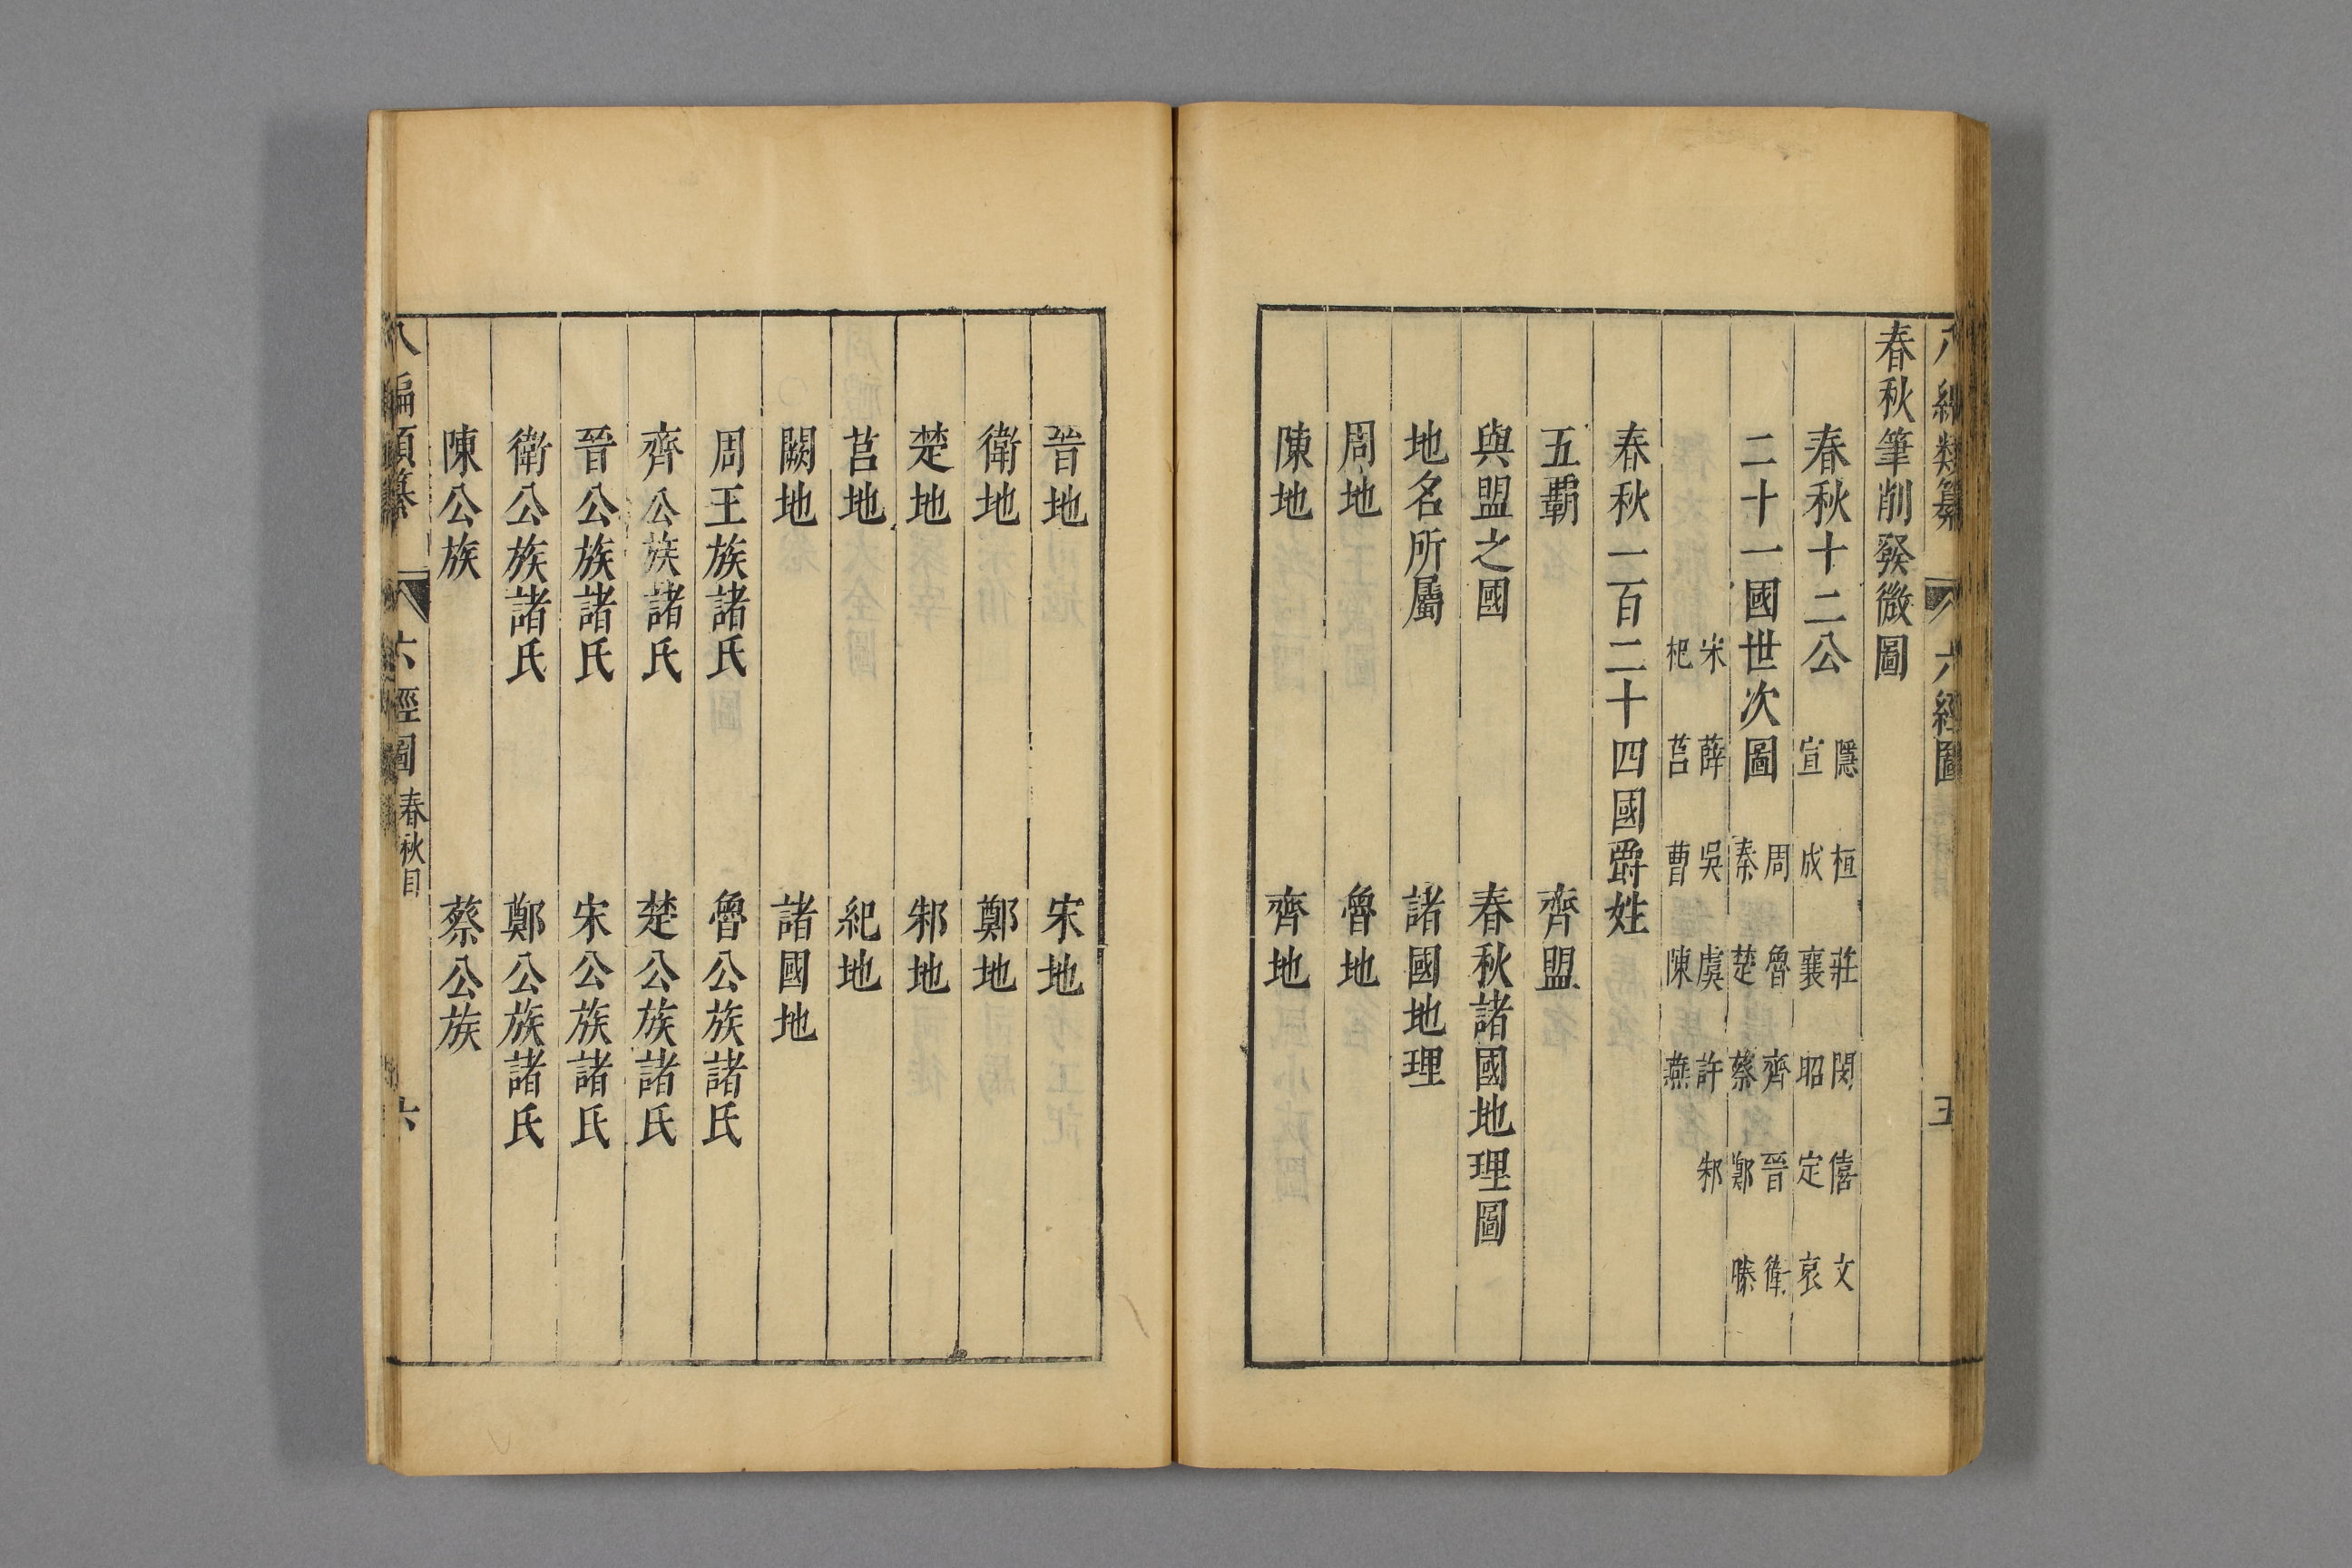 八編類纂 六經圖 五
春秋筆削發微圖
春秋十二公 隱 桓 莊 閔 僖 文
宣 成 襄 昭 定 哀
二十一國世次圖 周 魯 齊 晉 衛
秦 楚 蔡 鄭 滕
宋 薛 吳 虞 許 邾
杞 莒 曹 陳 燕
春秋一百二十四國爵姓
五霸 齊盟
與盟之國 春秋諸國地理圖
地名所屬 諸國地理
周地 魯地
陳地 齊地
晉地 宋地
衛地 鄭地
楚地 邾地
莒地 紀地
闕地 諸國地
周王族諸氏 魯公族諸氏
齊公族諸氏 楚公族諸氏
晉公族諸氏 宋公族諸氏
衛公族諸氏 鄭公族諸氏
陳公族 蔡公族
八編類纂 六經圖 春秋目 六